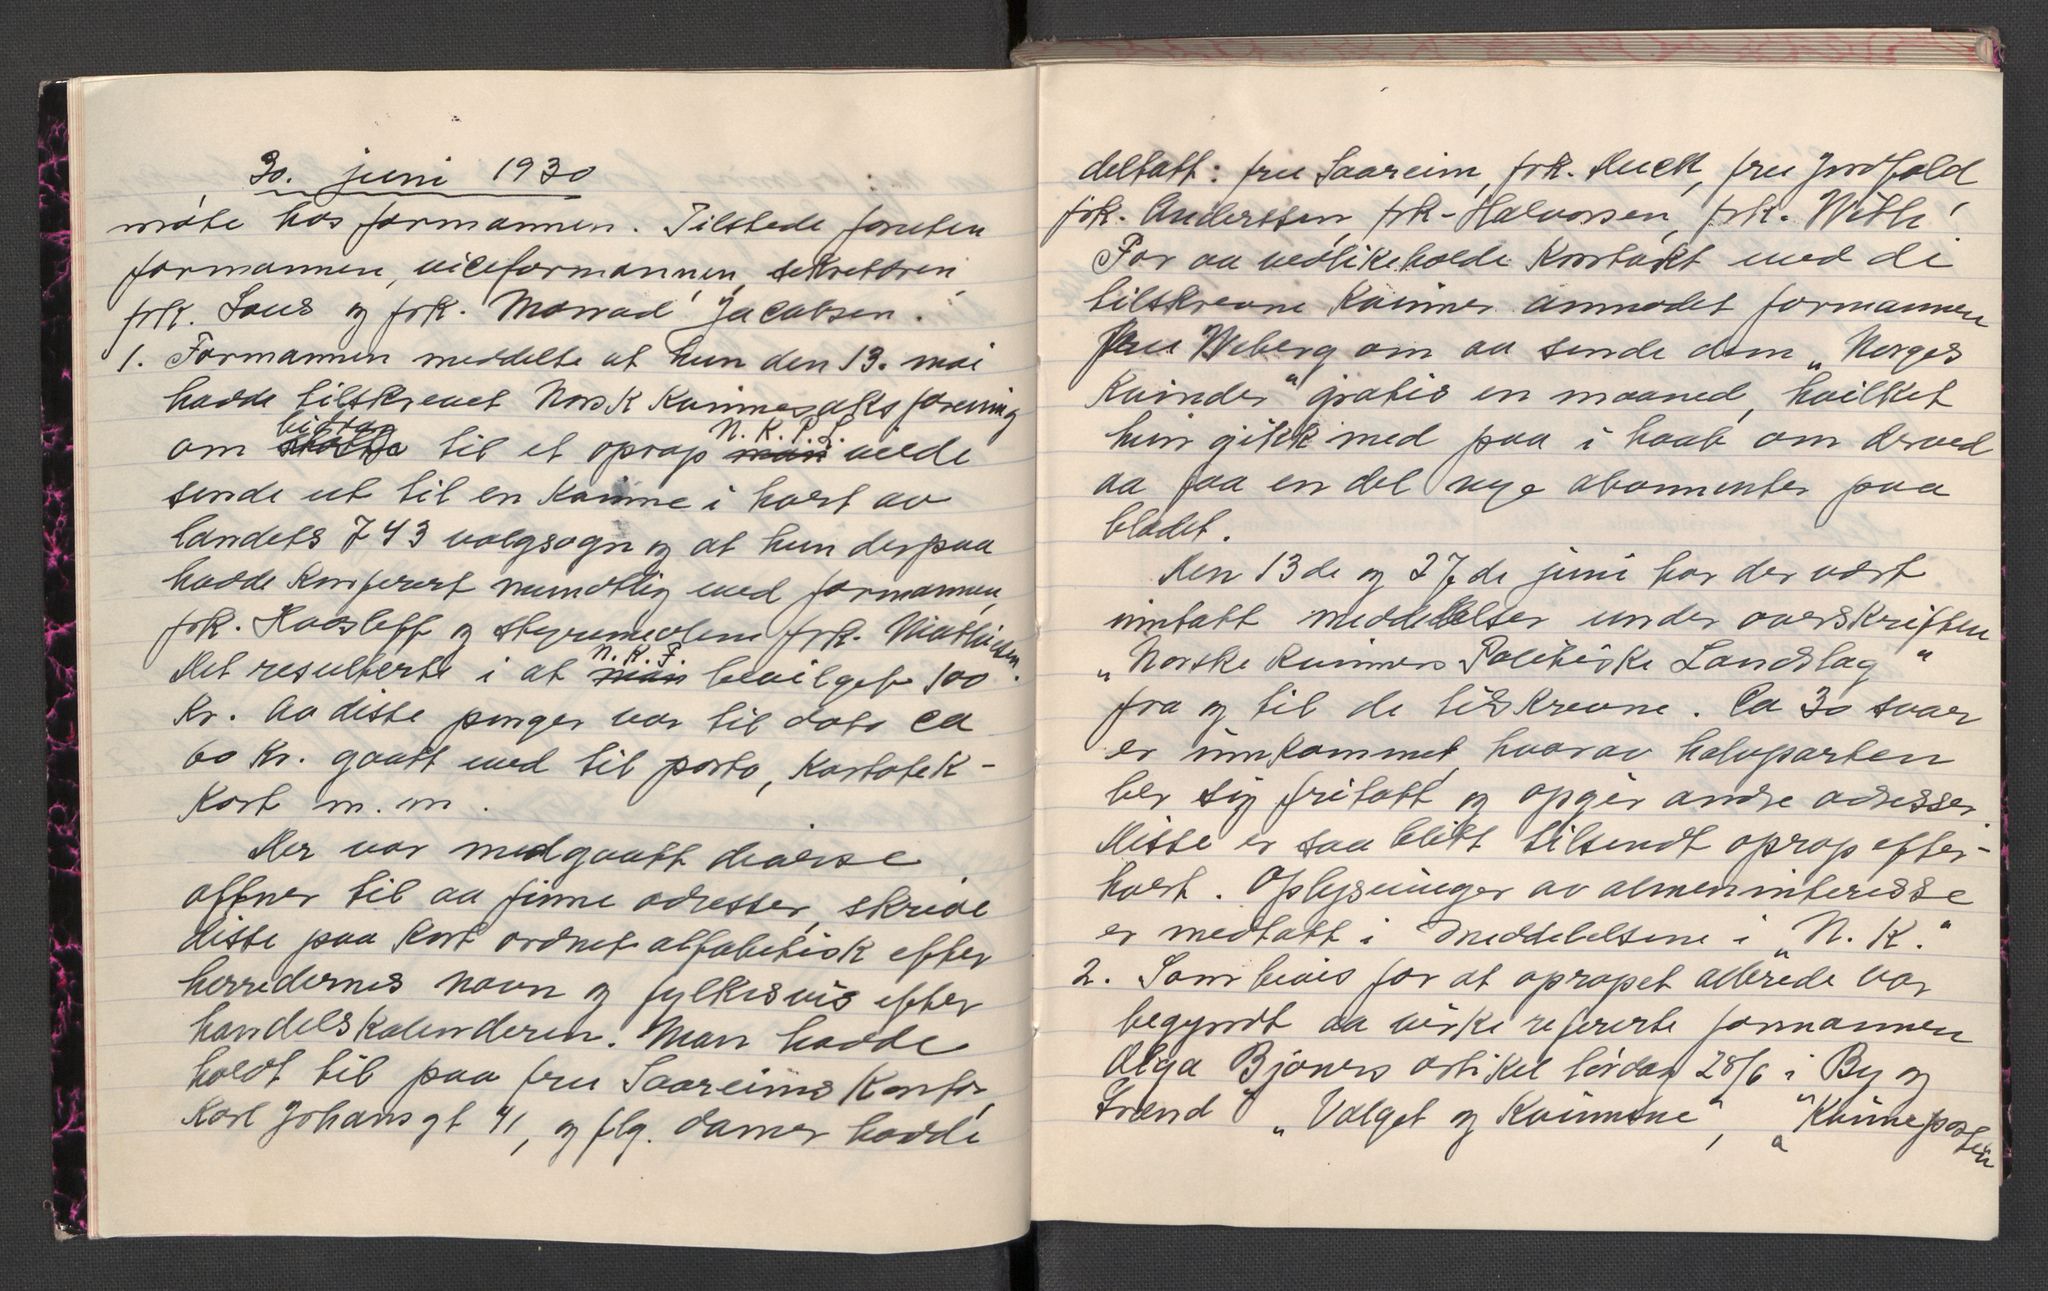 30. juni 1930
møte hos formannen. Tilstede foruten
formannen, viceformannen, sekretæren,
frk. Lous og frk. Monrad Jacobsen.
1. Formannen meddelte at hun den 13. mai
hadde tilskrevet Norsk Kvinnesaksforening
om bidrag til et oprop N.K.P.L. man vilde
sende ut til en kvinne i hvert av
landets 743 valgsogn og at hun derpaa
hadde konferert mundtlig med formannen,
frk. Haasleff og styremedlem frk.
Det resulterte i at N.K.F. man bevilget 100
kr. Av disse penger var til dato ca
60 kr. gaatt med til porto, kartotek-
kort m.m.
Der var medgaatt diverse
aftner til aa finne adresser, skrive
disse paa kort ordnet alfabetisk efter
herredernes navn og fylkesvis efter
handelskalenderen. Man hadde
holdt til paa fru Saareims kontor,
Karl Johansgt 41, og flg. damer hadde
deltatt: fru Saareim, frk. Muck, fru
frk. Anderssen, frk. Halvorsen, frk. With.
For aa vedlikeholde kontakt med de
tilskrevne kvinner anmodet formannen
fru Wiberg om aa sende dem „Norges
Kvinder" gratis en maaned, hvilket
hun gikk med paa i haab om derved
aa faa en del nye abonnenter paa
bladet.
Den 13de og 27de juni har der vært
inntatt meddelelser under overskriften
„Norske Kvinners Politiske Landslag"
fra og til de tilskrevne. Ca 30 svar
er innkommet, hvorav halvparten
ber sig fritatt og opgir andre adresser.
Disse er saa blitt tilsendt oprop efter-
hvert. Oplysninger av almeninteresse
er medtatt i meddelelsene i „N.K."
2. Som bevis for at opropet allerede var
begyndt aa virke refererte formannen
Olga Bjoners artikel lørdag 28/6 i By og
Strand „Valget og Kvinnene", „Kvinneposten